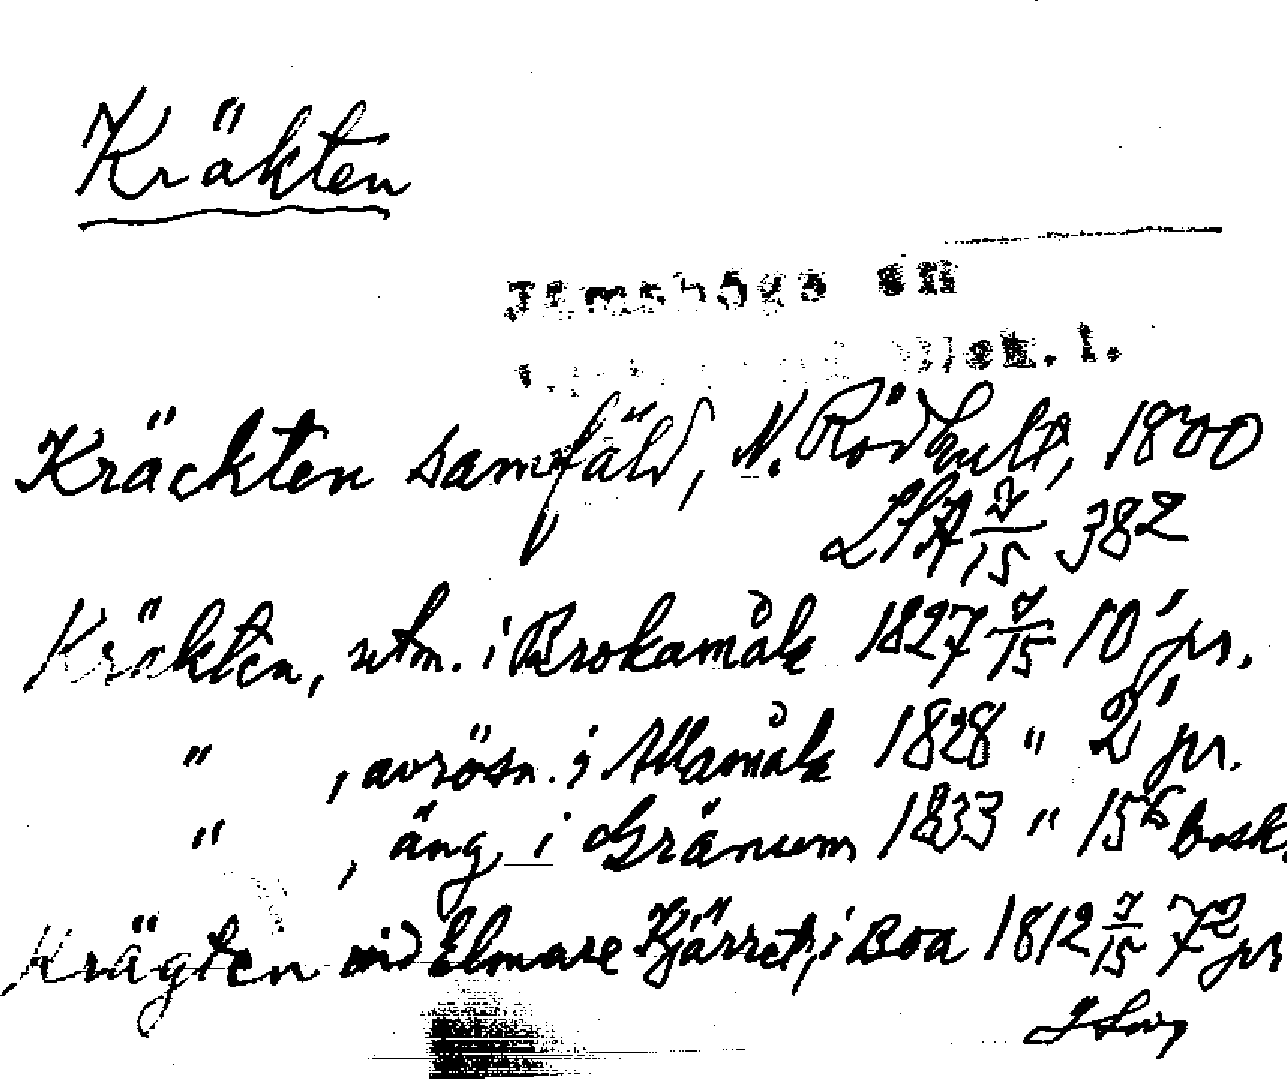 Kräkten
Jämshögs sn
Blek. l.
Kräckten samfäld, N. Rödhult, 1800
LSA 7/15 382
Kräkten, utm. i Brokamåla 1827 7/15 10 pr.
" , avrösn. i Allamåla 1828 " 2 pr.
" , äng i Gränum 1833 " 15 besk.
Krägten vid Elmare Kjärret, i Boa 1812 7/15 72 pr